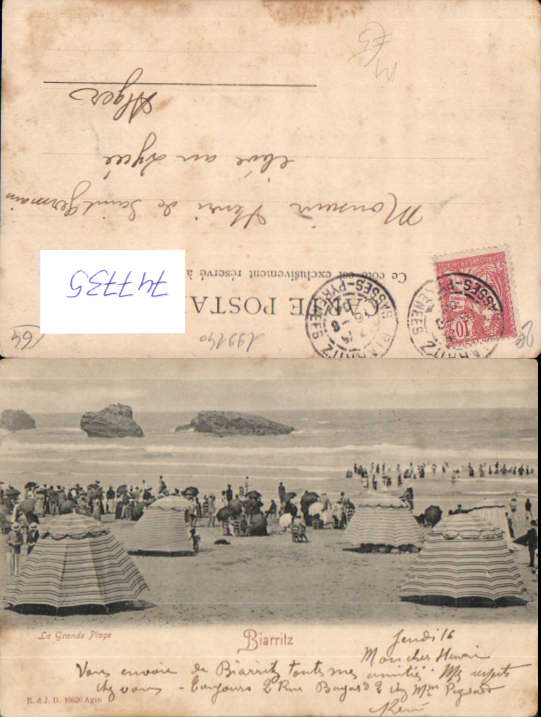 Alger
élève au Lycée
Monsieur Henri de Saint Germain
Ce côté est exclusivement réservé à
CARTE POSTA
747735
199240
64
BIARRITZ
BASSES-PYRÉNÉES
10
La Grande Plage
Biarritz
Jeudi 16
Mon cher Henri
Vous envoie de Biarritz toutes mes amitiés. Mes respects
chez vous - Toujours 2 Rue Bayard chez Mme
René
R. & J. D. 10620 Agen